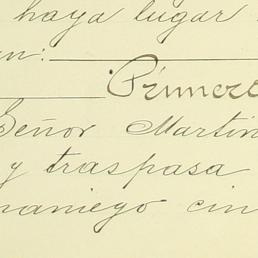 haya lugar
an:
Primero
Señor Martin
y traspasa
maniego cin